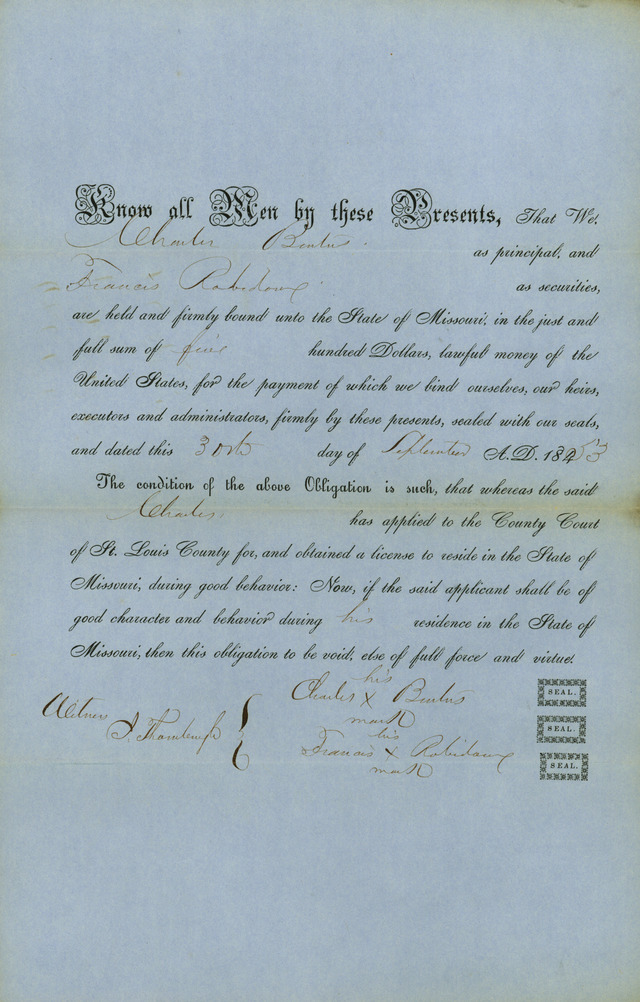 Know all Men by these Presents, That We,
Charles Bentus. as principal, and
Francis Robidoux as securities,
are held and firmly bound unto the State of Missouri, in the just and
full sum of five hundred Dollars, lawful money of the
United States, for the payment of which we bind ourselves, our heirs,
executors and administrators, firmly by these presents, sealed with our seals,
and dated this 30th day of September A.D. 1853
The condition of the above Obligation is such, that whereas the said
Charles has applied to the County Court
of St. Louis County for, and obtained a license to reside in the State of
Missouri, during good behavior: Now, if the said applicant shall be of
good character and behavior during his residence in the State of
Missouri, then this obligation to be void, else of full force and virtue.
his
Charles X Bentus SEAL.
mark
Witness
his SEAL.
Francis X Robidoux
mark SEAL.